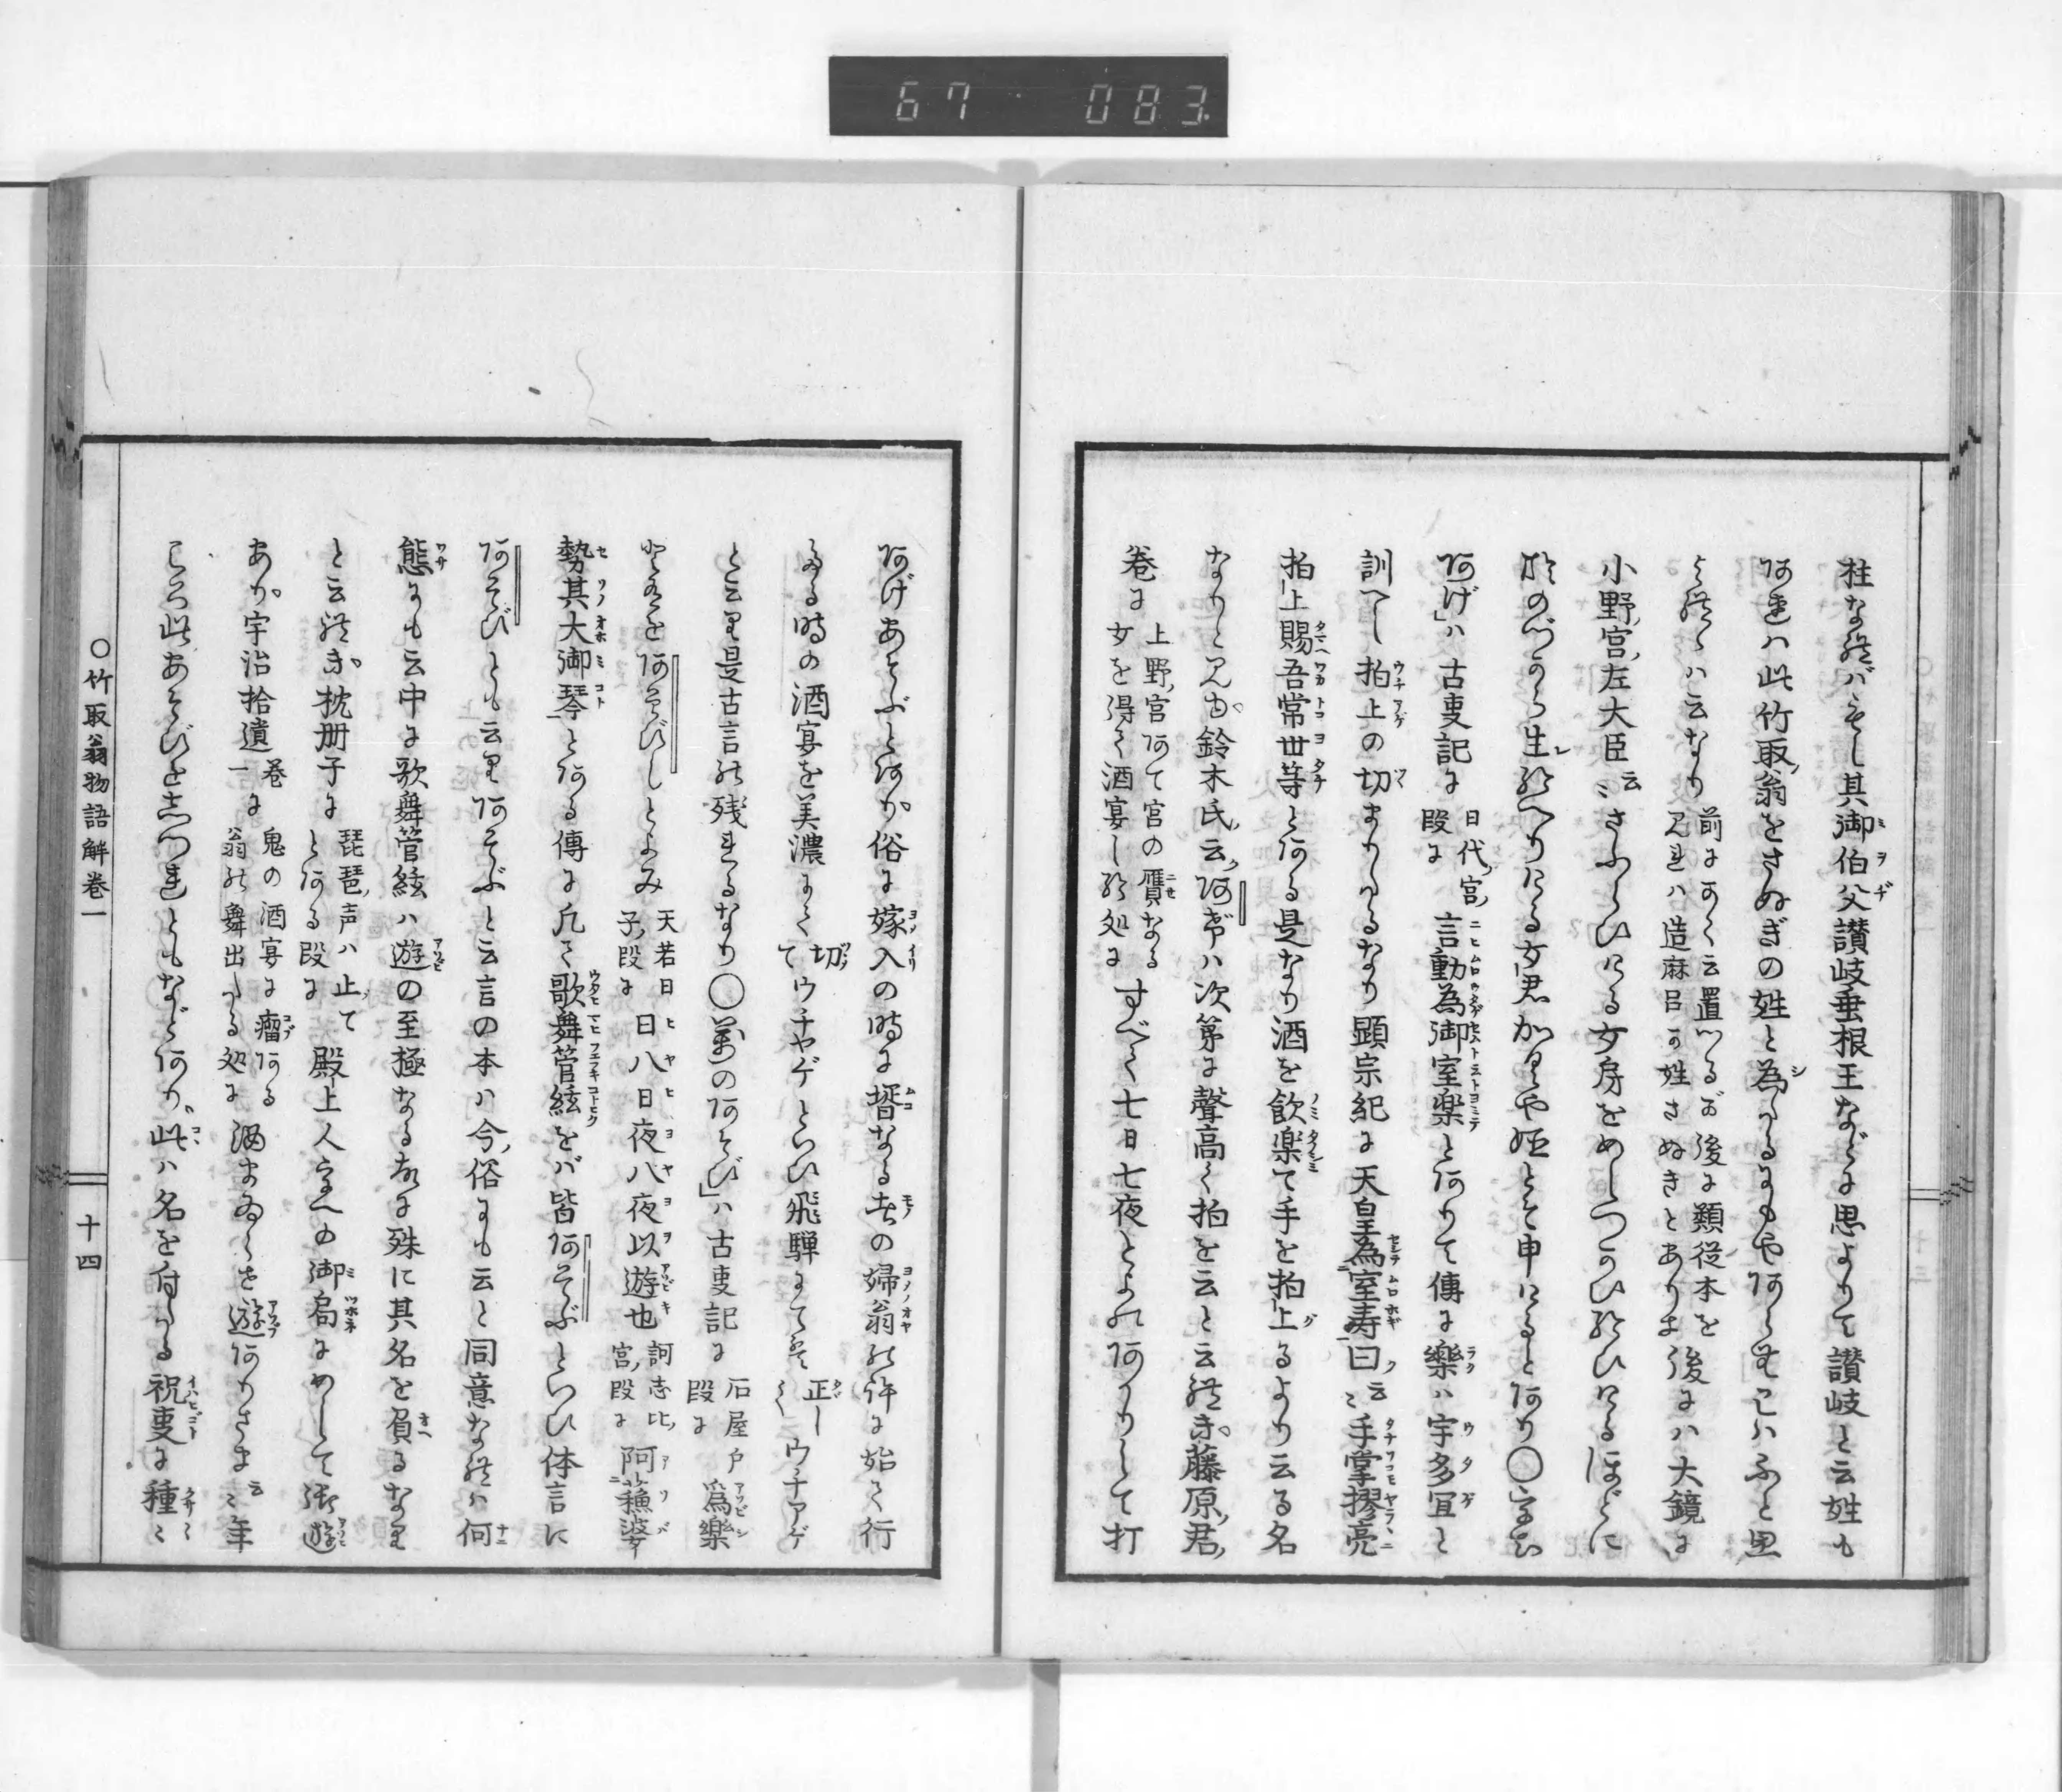 67 083
柱なればそし其御伯父讃岐垂根王などに思よりて讃岐と云姓も
あれハ此竹取翁をさぬぎの姓と為たるにもやあらむこハふと思
よれるハ云なり 前にかく云置つるお後に類従本を
見れハ造麻呂か姓さぬきとありま 後にハ大鏡に
小野宮左大臣云〻さふらひける女房をめしつかひ給ひけるほどに
おのづから生給へりける女君かくや姫とそ申けるとあり〇
あげ」ハ古叓記に 日代宮
段に 言動為御室楽とありて傳に樂ハ宇多冝と
訓べし拍上の切まりたるなり顕宗紀に天皇為室寿曰云〻手掌摎亮
拍上賜吾常世等とある是なり酒を飲楽て手を拍上るより云る名
なりと見ゆ鈴木氏云あげハ次第に聲高く拍を云と云れき藤原君
巻に 上野宮あて宮の贋なる
女を得て酒宴し給処に すべて七日七夜とよれあかりして打
あげあそぶとあり俗に嫁入の時に壻なる者の婦翁の許に始て行
たる時の酒宴を美濃にて 切
て ウチヤゲといひ飛騨にてそ 正し
く ウチアゲ
と云里是古言の残れるなり〇萬のあそび」ハ古叓記に 石屋戸
段に 為樂
あそびしとよみ 天若日
子段に 日八日夜八夜以遊也 訶志比
宮段に 阿蘓婆
勢其大御琴とある傳に凡て歌舞管絃をバ皆あそぶといひ体言に
あそびとも云里あそぶと云言の本ハ今俗にも云と同意なれハ何
態にも云中に歌舞管絃ハ遊の至極なる故に殊に其名を負るなり
と云れき枕册子に 琵琶声ハ止て
とある段に 殿上人の御局にめして御遊
あり宇治拾遺 巻
一に 鬼の酒宴に瘤ある
翁の舞出たる処に 酒まゐらせ遊ありさま云〻年
ころ此あそびを志つれともなどあり此ハ名を付たる祝叓に種〻
〇竹取翁物語解巻一
十四